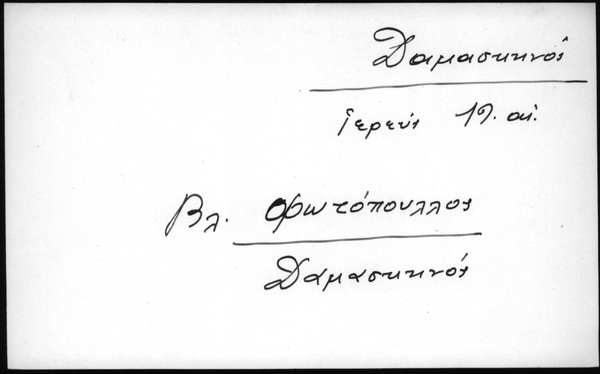 Δαμασκηνός
ἱερεύς 19. αἰ.
Βλ. Φωτόπουλλος
Δαμασκηνός